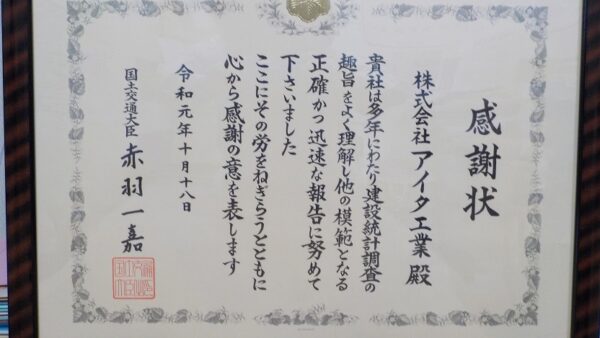 感謝状
株式会社アイタ工業 殿
貴社は多年にわたり建設統計調査の
趣旨をよく理解し他の模範となる
正確かつ迅速な報告に努めて
下さいました
ここにその労をねぎらうとともに
心から感謝の意を表します
令和元年十月十八日
国土交通大臣 赤羽一嘉